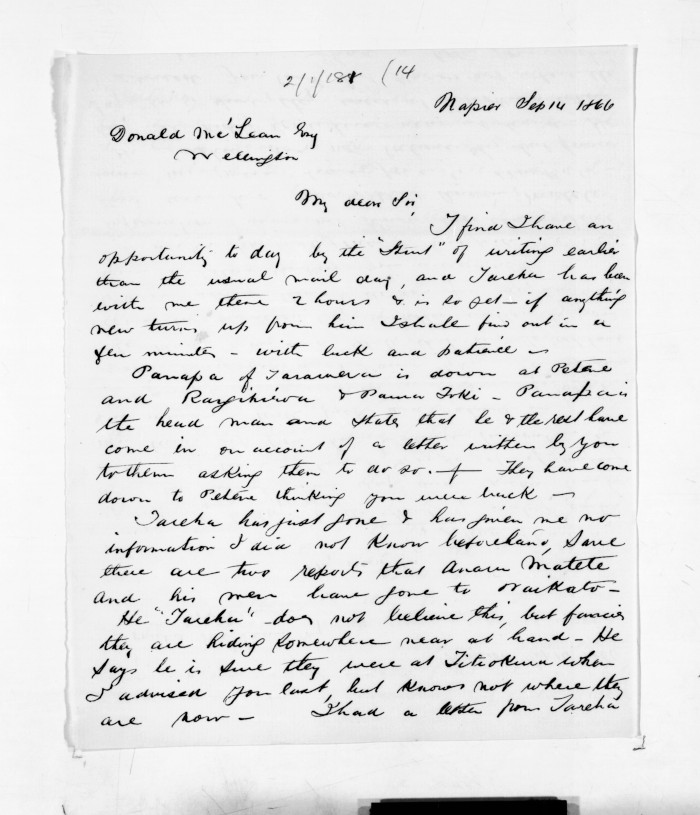 2/1/188 (14
Napier Sep 14 1866
Donald McLean Esq
Wellington
My dear Sir,
I find I have an
opportunity to day by the " " of writing earlier
than the usual mail day, and Tareha has been
with me these 2 hours & is so yet - if anything
new turns up from him I shall find out in a
few minutes - with luck and patience -
Panapa of Tarawera is down at Petere
and & Paora Toki - Panapa is
the head man and states that he & the rest have
come in on account of a letter written by you
to them asking them to do so. - They have come
down to Petere thinking you were back -
Tareha has just gone & has given me no
information I did not know beforehand, save
there are two reports that Anaru Matete
and his men have gone to Waikato -
He "Tareha" does not believe this, but fancies
they are hiding somewhere near at hand - He
says he is sure they were at Titiokura when
I advised you last, but knows not where they
are now - I had a letter from Tareha